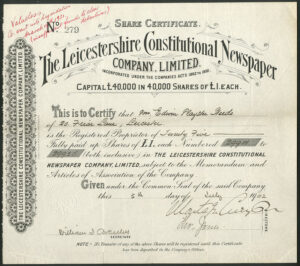 Valueless
SHARE CERTIFICATE.
No. 279
The Leicestershire Constitutional Newspaper
COMPANY, LIMITED.
INCORPORATED UNDER THE COMPANIES ACTS 1862 TO 1898.
CAPITAL £40,000 IN 40,000 SHARES OF £1. EACH.
This is to Certify that Mr Edwin Playster Steeds
of 20. Friar Lane, Leicester
is the Registered Proprietor of Twenty Five
Fully paid up Shares of £1. each Numbered
to (both inclusive) in THE LEICESTERSHIRE CONSTITUTIONAL
NEWSPAPER COMPANY, LIMITED, subject to the Memorandum and
Articles of Association of the Company.
Given under the Common Seal of the said Company
this 5th day of July 1902
SECRETARY
NOTE.—No Transfer of any of the above Shares will be registered until this Certificate
has been deposited at the Company's Offices.
THE LEICESTERSHIRE CONSTITUTIONAL NEWSPAPER COMPANY, LIMITED.